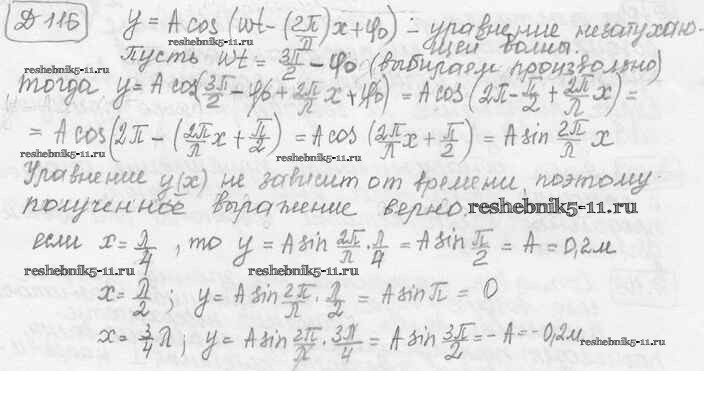 Д 116 y = A cos (wt - (2π/λ)x + φ₀) - уравнение незатухаю-
щей волны.
reshebnik5-11.ru
Пусть wt = 3π/2 - φ₀ (выбираем произвольно)
reshebnik5-11.ru reshebnik5-11.ru
Тогда y = A cos(3π/2 - φ₀ + 2π/λ x + φ₀) = A cos(2π - π/2 + 2π/λ x) =
= A cos(2π - (2π/λ x + π/2)) = A cos (2π/λ x + π/2) = A sin 2π/λ x
reshebnik5-11.ru reshebnik5-11.ru
Уравнение y(x) не зависит от времени, поэтому
полученное выражение верно. reshebnik5-11.ru
если x = λ/4, то y = A sin 2π/λ · λ/4 = A sin π/2 = A = 0,2м
reshebnik5-11.ru reshebnik5-11.ru
x = λ/2; y = A sin 2π/λ · λ/2 = A sin π = 0
x = 3/4 λ; y = A sin 2π/λ · 3λ/4 = A sin 3π/2 = - A = -0,2м
reshebnik5-11.ru